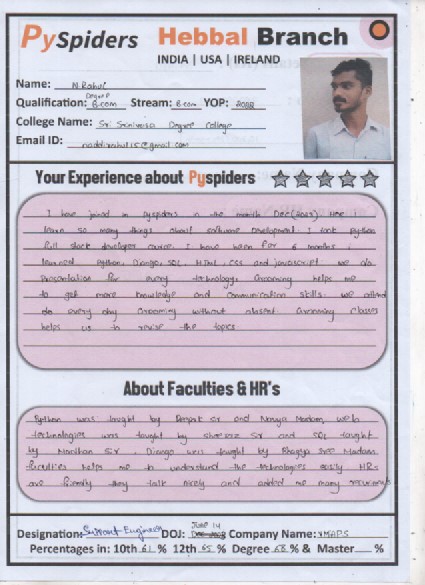 PySpiders Hebbal Branch
INDIA | USA | IRELAND
Name: N. Rahul
Degree
Qualification: B.com Stream: B.com YOP:
College Name: Sri Srinivasa Degree College
Email ID:
Your Experience about Pyspiders
I have joined in pyspiders in the month Dec(2023). Here I
learn so many things about software Development. I took python
full stack developer course. I have been for 6 months.
learned Python, Django, SQL, HTML, CSS and javascript we do
Presentation for every technology. Grooming helps me
to get more knowledge and communication skills. we attend
do every day Grooming without absent. Grooming classes
helps us to revise the topics.
About Faculties & HR's
Python was taught by Deepak Sir and Navya Madam, web
technologies was taught by Sir and SQL taught
by Sir, Django was taught by Bhagya Sree Madam.
faculties helps me to understand the technologies easily HRs
are friendly they talk nicely and added me many
June 14
Designation: Support Engineer DOJ: Company Name: XMAPS
Percentages in: 10th 61 % 12th 65 % Degree 68 % & Master %